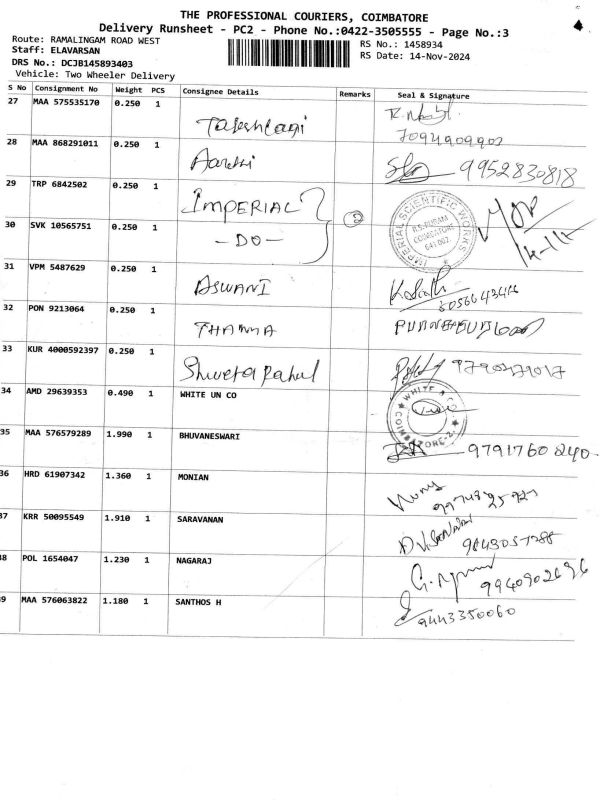 THE PROFESSIONAL COURIERS, COIMBATORE
Delivery Runsheet - PC2 - Phone No.:0422-3505555 - Page No.:3
Route: RAMALINGAM ROAD WEST
RS No.: 1458934
Staff: ELAVARSAN
RS Date: 14-Nov-2024
DRS No.: DCJB145893403
Vehicle: Two Wheeler Delivery
S No Consignment No Weight PCS Consignee Details Remarks Seal & Signature
27 MAA 575535170 0.250 1
7094909902
28 MAA 868291011 0.250 1 Aarthi 9952830818
29 TRP 6842502 0.250 1 IMPERIAL 2
IMPERIAL SCIENTIFIC WORKS
R.S. PURAM
COIMBATORE
641 002
30 SVK 10565751 0.250 1 -DO-
31 VPM 5487629 0.250 1 ASWANI
32 PON 9213064 0.250 1
33 KUR 4000592397 0.250 1 Shweta Rahul
34 AMD 29639353 0.490 1 WHITE UN CO
35 MAA 576579289 1.990 1 BHUVANESWARI 9791760240
36 HRD 61907342 1.360 1 MONIAN
37 KRR 50095549 1.910 1 SARAVANAN
38 POL 1654047 1.230 1 NAGARAJ
39 MAA 576063822 1.180 1 SANTHOS H 9443350060